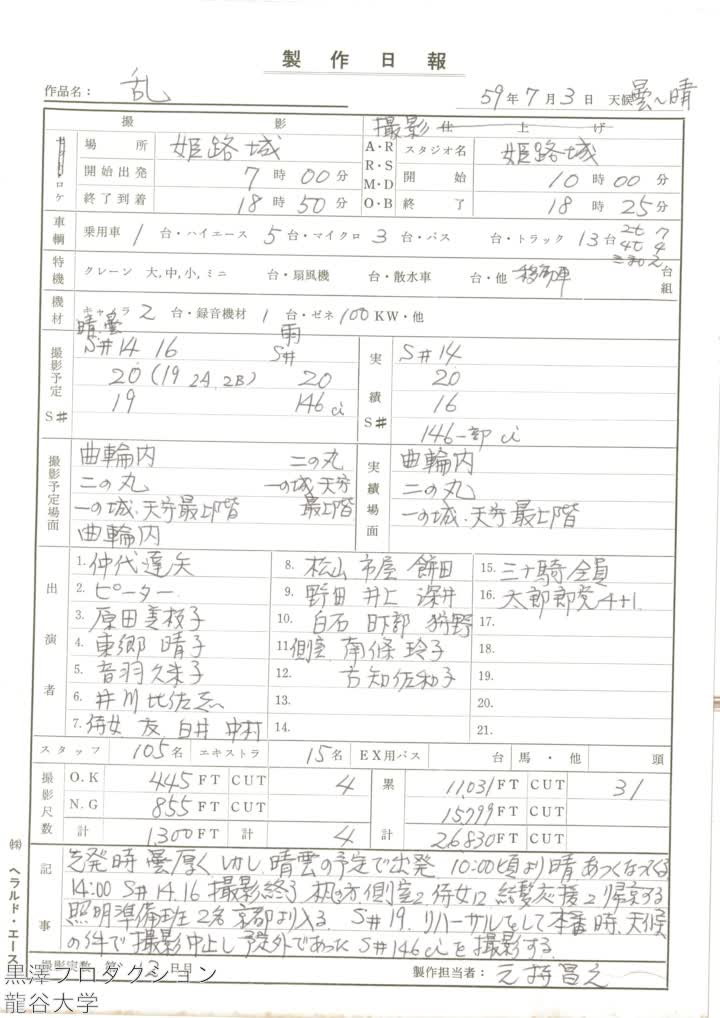 製作日報
作品名： 乱
59年7月3日 天候 曇〜晴
撮影
撮影仕上げ
場所 姫路城
A・R
R・S
M・D
O・B
スタジオ名 姫路城
ロケ
開始出発 7時00分
開始 10時00分
終了到着 18時50分
終了 18時25分
車輌
乗用車 1台・ハイエース 5台・マイクロ 3台・バス 台・トラック 13台
2t 7
4t 4
特機
クレーン 大,中,小,ミニ 台・扇風機 台・散水車 台・他 移動車 台組
機材
キャメラ 2台・録音機材 1台・ゼネ 100KW・他
撮影予定 S#
晴.曇 雨
S#14 16 S#
20 (19 2A, 2B) 20
19 146 ci
実績 S#
S#14
20
16
146一部 ci
撮影予定場面
曲輪内 二の丸
二の丸 一の城.天守
一の城.天守最上階 最上階
曲輪内
実績場面
曲輪内
二の丸
一の城.天守最上階
出演者
1.仲代達矢
2.ピーター
3.原田美枝子
4.東郷晴子
5.音羽久米子
6.井川比佐志
7.侍女 友 白井 中村
8.松山 市屋 餅田
9.野田 井上 深井
10.白石 日下部 狩野
11.側室 南條玲子
12.古知佐和子
13.
14.
15.三十騎全員
16.太郎郎党4+1
17.
18.
19.
20.
21.
スタッフ 105名 エキストラ 15名 EX用バス 台 馬・他 頭
撮影尺数
O.K 445FT CUT 4
N.G 855FT CUT
計 1300FT 計 4
累計
11,031FT CUT 31
15,799FT CUT
26830FT CUT
記事
出発時 曇厚く しかし晴曇の予定で出発 10:00頃より晴 あつくなってくる
14:00 S#14.16 撮影終了 側室2 侍女12 結髪応援2 帰京する
照明準備班 2名 京都より入る S#19. リハーサルをして本番時、天候
の件で撮影中止し 予定外であった S#146ciを撮影する
撮影実数 第 日目
製作担当者：
㈱ ヘラルド・エース
黒澤プロダクション
龍谷大学